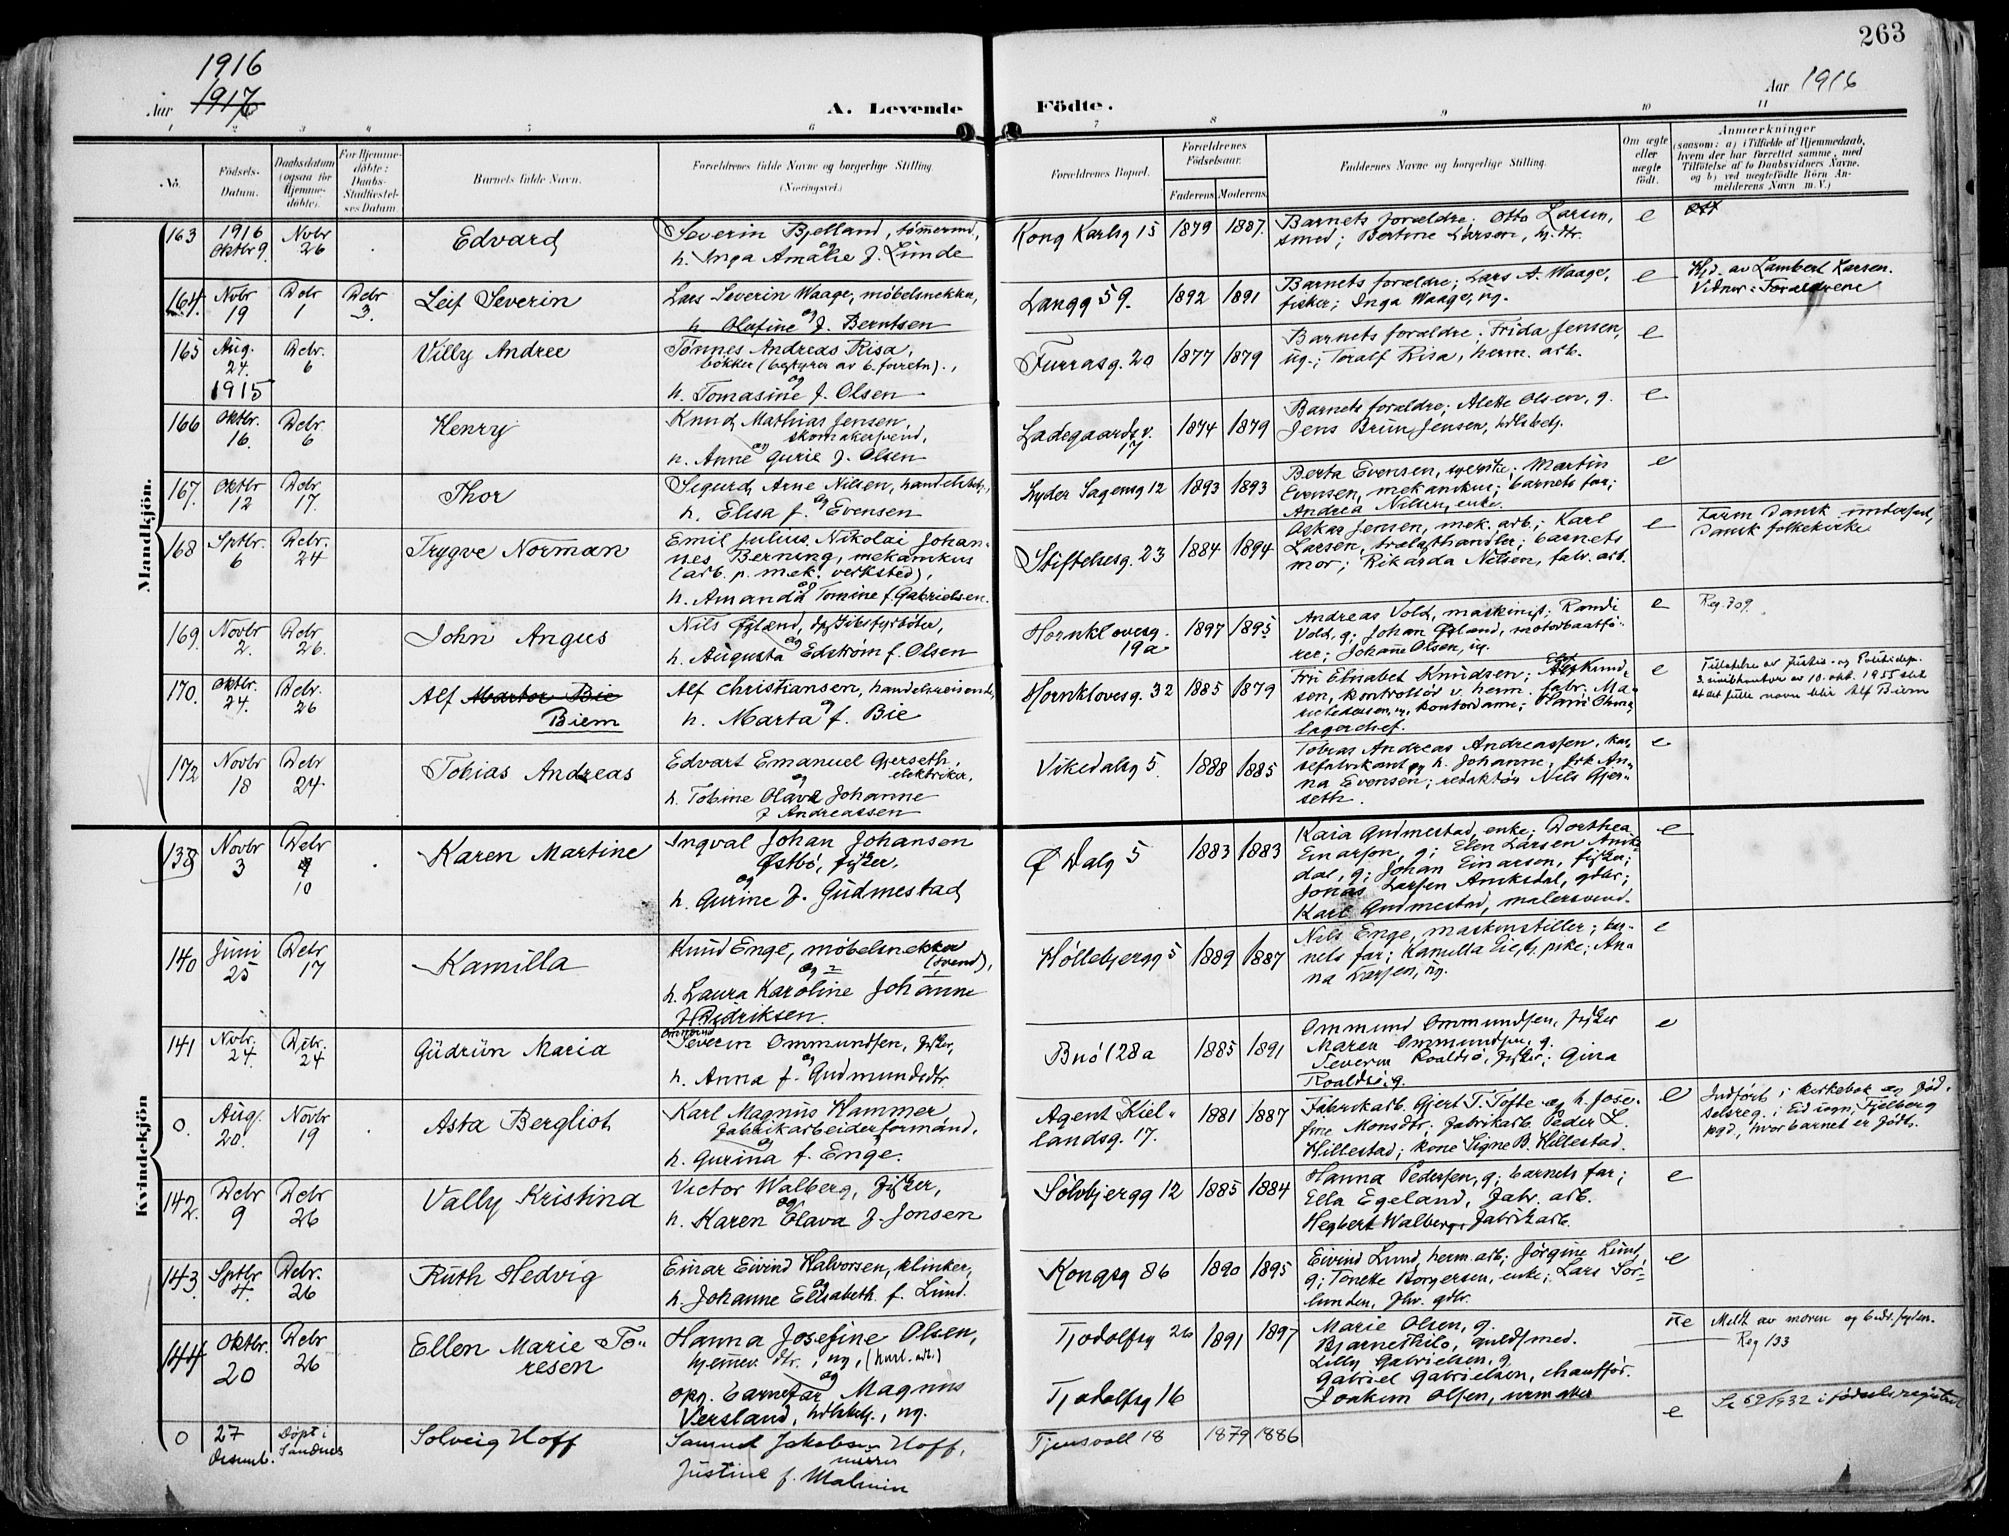 263
1916
Aar 1917
A. Levende
Födte.
Aar 1916
1 2 3 4 5 6 7 8 9 10 11
No.
Födsels-Datum.
Daabsdatum (ogsaa for Hjemme-döbte).
For Hjemme-döbte: Daabs-Stadfæstel-ses Datum.
Barnets fulde Navn.
Forældrenes fulde Navne og borgerlige Stilling
(Næringsvei.)
Forældrenes Bopæl.
Forældrenes Födselsaar.
Faderens. Moderens.
Faddernes Navne og borgerlige Stilling.
Om ægte eller uægte födt.
Anmærkninger
(saasom: a) i Tilfælde af Hjemmedaab, hvem der har forrettet samme, med Tilföielse af to Daabsvidners Navne, og b) ved uægtefödte Börn An-melderens Navn m. V.)
Mandkjön.
163 1916 Oktbr 9. Novbr 26 Edvard
Severin Bjelland, tømmermd,
og
h. Inga Amalie f. Lunde
Kong Karlsg 15 1879 1887.
Barnets forældre; Otto Larsen,
smed; Bertine Larsen, hj. dtr.
e
164. Novbr 19 Debr 1 Debr 3. Leif Severin
Lars Severin Waage, møbelsnekker,
og
h. Olafine f. Berntsen
Langg 59. 1892 1891
Barnets forældre; Lars A. Waage,
fisker; Inga Waage, ug.
e
Hjd. av Lambert Larsen.
Vidner: Forældrene
165 Aug. 24. 1915 Debr. 6 Villy Andree
Tønnes Andreas Risa,
bøkker (bestyrer av b. forretn).,
og
h. Tomasine f. Olsen
Furrasg. 20 1877 1879
Barnets forældre; Frida Jensen,
ug.; Toralf Risa, herm. arb.
e
166 Oktbr. 16. Debr. 6 Henry
Knud Mathias Jensen,
skomakersvend,
og
h. Anne Gurie f. Olsen
Ladegaardsv. 17 1874 1879
Barnets forældre; Alette Olsen, g.
Jens Brun Jensen, hdlsbetj.
e
167. Oktbr 12 Debr 17. Thor
Sigurd Arne Nilsen, handelsbetj.,
og
h. Elisa f. Evensen
Lyder Sagensg 12 1893 1893
Berta Evensen, syerske; Martin
Evensen, mekanikus; barnets far;
Andrea Nilsen, enke.
e
168. Sptbr. 6 Debr. 24 Trygve Norman
Emil Julius Nikolai Johan-
nes Berning, mekanikus
(arb. p. mek. verksted),
og
h. Amanda Tomine f. Gabrielsen.
Stiftelsesg. 23 1884 1894
Oskar Jensen, mek. arb.; Karl
Larsen, trælasthandler; barnets
mor; Rikarda Nilsen, fabr. arb.
e
Faren Dansk undersaat,
Dansk folkekirke
169. Novbr 2. Debr 26. John Angus
Nils Øgland,
og
h. Augusta Edstrøm f. Olsen
Hornklovesg. 19a 1897 1895
Andreas Vold, maskinist; Randi
Vold, g; Johan Øgland, motorbaatfø-
rer; Johanne Olsen, ug.
e
Reg. 709.
170. Oktbr. 24. Debr. 26 Alf Martor Bie
Biem
Alf Christiansen, handelsreisende,
og
h. Marta f. Bie
Hornklovesg. 32 1885 1879
Fru Elisabet Knudsen;
sen, kontrollør v. herm. fabr.; Ma-
rie Pedersen, ug, kontordame;
lagerchef.
e
Tillatelse av Justis- og Politidep.
3. sivilkontor av 10. okt. 1955 til
at det fulle navn blir Alf Biem
172 Novbr 18 Debr 24. Tobias Andreas
Edvart Emanuel Gjerseth,
elektriker,
og
h. Tobine Olava Johanne
f Andreassen
Vikedalsg 5. 1888 1885
Tobias Andreas Andreassen, kas-
sefabrikant og h. Johanne; frk An-
na Evensen; redaktør Nils Gjer-
seth.
e
Kvindekjön
139 Novbr 3 Debr 10 Karen Martine
Ingval Johan Johansen
Østbö, fisker,
og
h. Gurine f. Gudmestad
Ø Dalg 5 1883 1883
Kaia Gudmestad, enke; Dorthea
Einarson, g; Elen Larsen Aniks-
dal, g; Johan Einarson, fisker;
Jonas Larsen Aniksdal, gdbr;
Karl Gudmestad, malersvend.
e
140 Juni 25 Debr 17 Kamilla
Knud Enge, møbelsnekker
(svend),
og
h. Laura Karoline Johanne
f. Didriksen.
Høllebjergg 5 1889 1887
Nils Enge, maskinstiller; bar-
nets far; Kamilla Lie, g. pike; An-
na Larsen, ug.
e
141 Novbr. 24. Debr. 24 Gudrun Maria
Ommund
Severin Ommundsen, fisker,
og
h. Anna f. Gudmundsdtr.
Buö 128a 1885 1891
Ommund Ommundsen, fisker
Maren Ommundsen, g.
Severin Roaldsö, fisker; Gina
Roaldsö, g.
e
0. Aug. 20. Novbr 19 Asta Bergliot
Karl Magnus Hammer
fabrikarbeiderformand,
og
h. Gurina f. Enge.
Agent Kiel-
landsg. 17. 1881 1887
Fabrikarb. Gjert T. Tofte og h. Jose-
fine Monsdtr. Fabrikarb. Peder L.
Hillestad; kone Signe B. Hillestad.
e
Indført i kirkebok og fød-
selsreg. i Eid sogn, Fjelberg
pgd., hvor barnet er født.
142. Debr 9 Debr 26 Vally Kristina
Victor Walberg, fisker,
og
h. Karen Olava f. Jonsen
Sølvbjergg 12 1885 1884
Hanna Pedersen, g; barnets far;
Ella Egeland, fabr. arb.
Hegbert Walberg, fabrikarb.
e
143. Sptbr 4. Debr. 26 Ruth Hedvig
Einar Eivind Halvorsen, klinker,
og
h. Johanne Elisabeth f. Lund.
Kongsg 86 1890 1895
Eivind Lund, herm. arb; Jørgine Lund,
g; Toneke Borgersen, enke; Lars Sör-
lunden, fhv. gdbr.
e
144 Oktbr. 20 Debr 26 Ellen Marie To-
resen
Hanna Josefine Olsen,
hjemmev. dtr., ug,
og
opg. barnefar Magnus
Versland, hdlsbetj., ug.
Tjodolfsg 26 1891 1897
Tjodolfsg 16
Marie Olsen, g.
Bjarne Thilo, guldsmed.
Lilly Gabrielsen, g.
Gabriel Gabrielsen, chauffør.
Joakim Olsen, urmaker
ue
Meldt av moren og
Reg 133
0 27 Desemb. Døpt i Sandnes Solveig Hoff
Samuel Jakobsen Hoff,
murer
Justine f. Malmin
Tjensvoll 18 1879 1886
e
Se 69/1932 i fødselsregistret